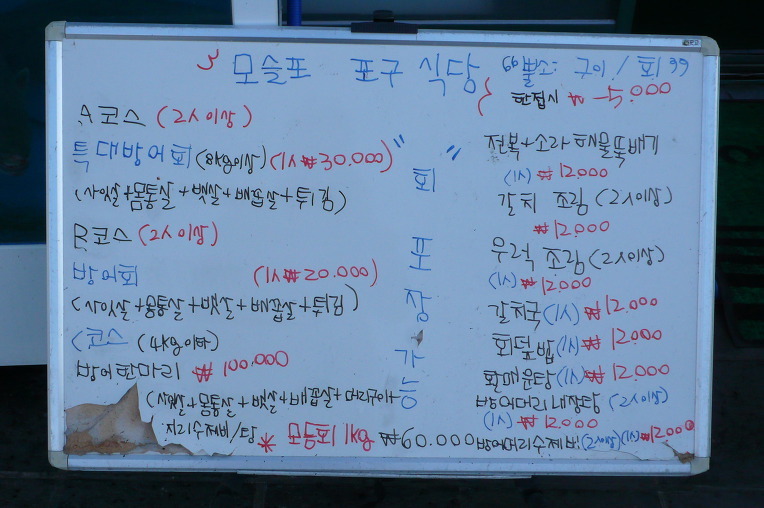 모슬포 포구 식당
A코스 (2人이상)
특대방어회 (8kg이상) (1人₩30.000)
(사잇살+몸통살+뱃살+배꼽살+튀김)
B코스 (2人이상)
방어회 (1人₩20.000)
(사잇살+몸통살+뱃살+배꼽살+튀김)
C코스 (4kg이하)
방어한마리 ₩100.000
(사잇살+몸통살+뱃살+배꼽살+머리구이+
지리수제비/탕
* 모듬회 1kg ₩60.000
"회 포장 가능"
"뿔소: 구이/회"
한접시 ₩ 5.000
전복+소라 해물뚝배기
(1人) ₩12.000
갈치 조림 (2人이상)
₩12.000
우럭 조림 (2人이상)
(1人) ₩12.000
갈치국 (1人) ₩12.000
회덮밥 (1人) ₩12.000
활매운탕 (1人) ₩12.000
방어머리 내장탕 (2人이상)
(1人) ₩12.000
방어머리수제비 (2人이상) (1人) ₩12.000